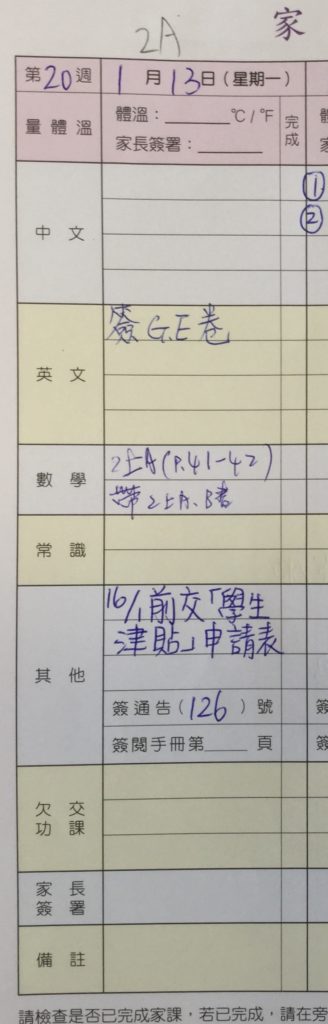 2A
家
第20週 1月13日(星期一)
量體溫
體溫：______°C/°F
家長簽署：______
完成
①
②
中文
英文
簽G.E卷
數學
2上A(P.41-42)
帶2上A、B書
常識
其他
16/1前交「學生
津貼」申請表
簽通告(126)號
簽閱手冊第____頁
欠交
功課
家長
簽署
備註
請檢查是否已完成家課，若已完成，請在旁